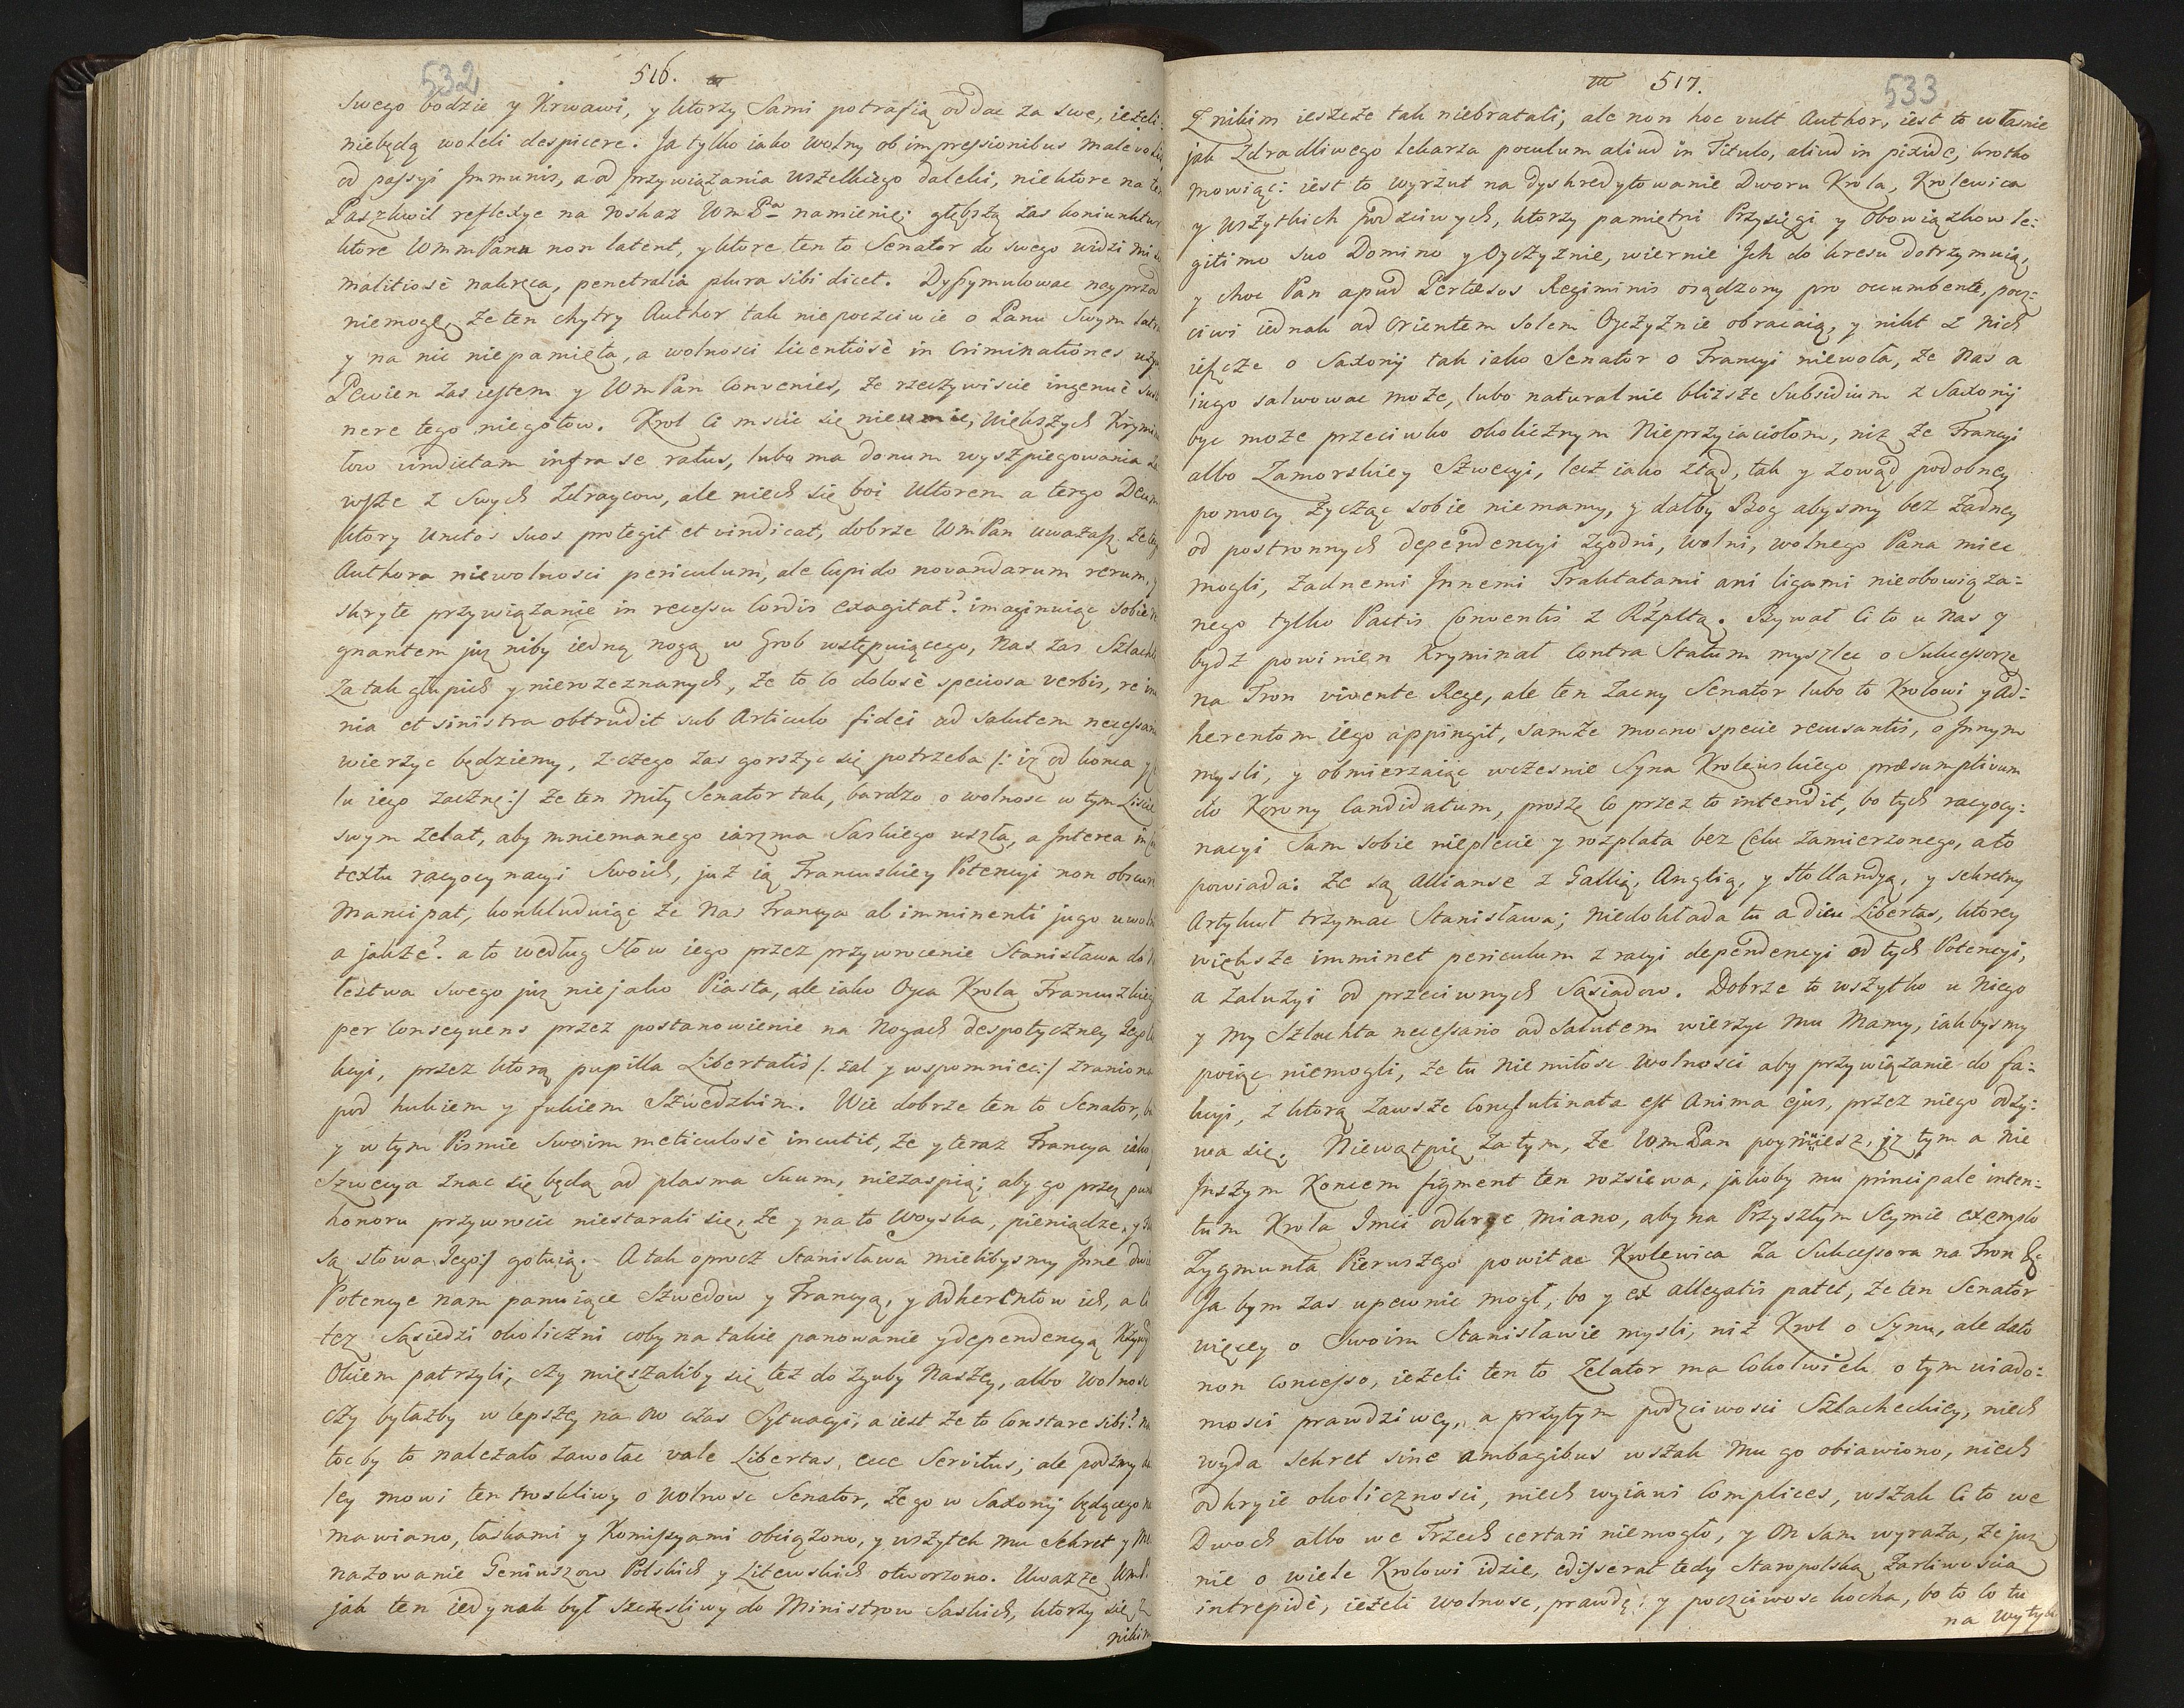 532
516.
swego bodzie y Krwawi, y ktorzy sami potrafią oddac za swe, ieżeli
niebędą woleli despicere. Ja tylko iako wolny ob impressionibus
od passyi Immunis, a od przywiązania wszelkiego daleki, niektore na
Paszkwil reflexye na roskaz WmPa namienię; głębszą zas
ktore WmmPana non latent, y ktore ten to Senator do swego widzi
malitiosè nakręca, penetralia plura sibi dicet. Dyssymulowac
niemogę, że ten chytry Author tak niepoczciwie o Panu swym
y na nic niepamięta, a wolnosci licentiosè in Criminationes
Pewien zas iestem y WmPan Convenies, że rzeczywiscie ingenuè
nere tego niegotow. Krol Ci mscic się nieumie, większych
low vindictam infra se ratus, lubo ma donum wyszpiegowania
wsze z swych Zdraycow, ale niech się boi Ultorem a tergo Deum
ktory Unctos suos protegit et vindicat, dobrze WmPan uważasz, że
Authora niewolnosci periculum, ale Cupido novandarum rerum, y
skryte przywiązanie in recessu Cordis exagitat? imaginuiąc sobie
gnantem już niby iedną nogą w Grob wstępuiącego, nas zas
za tak głupich y nierozeznanych, że to co dolosè speciosa verbis, re
nia et sinistra obtrudit sub Articulo fidei ad salutem
wierzyc będziemy, z czego zas gorszyc się potrzeba /: iż od konca
lu iego zacznę :/ że ten miły Senator tak, bardzo o wolnosc w tym
swym zelat, aby mniemanego iarzma Saskiego uszła, a Interea in
textu racyocynacyi swoich, już ią Francuskiey Potencyi non
Mancipat, konkluduiąc że nas Francya ab imminenti jugo
a jakże? a to według słow iego przez przywrocenie Stanisława do
lestwa swego już niejako Piasta, ale iako Oyca Krola
per Consequens przez postanowienie na nogach despotyczney
kcyi, przez którą pupilla Libertatis /: żal y wspomniec :/
pod hukiem y fukiem Szwedzkim. Wie dobrze ten to Senator,
y w tym Pismie swoim meticulosè incutit, że y teraz Francya
Szwecya znac się będą ad plasma suum, niezaspią; aby go przez
honoru przywrocic niestarali się, że y na to Woyska, pieniądze, y
są słowa Jego :/ gotuią. A tak oprocz Stanisława mielibysmy Inne
Potencye nam panuiące Szwedow y Francyą, y Adherentow ich,
też Sąsiedzi okoliczni coby na takie panowanie y dependencyą
Okiem patrzyli, czy mięszaliby się też do zguby naszey, albo wolnosc
czy byłażby w lepszey na ow czas Sytuacyi, a iest że to Constare sibi?
toc by to należało zawołac vale Libertas, ecce Servitus; ale podźmy
ley mowi ten troskliwy o wolnosc Senator, że go w Saxonij będącego
mawiano, łaskami y Komissyami obciążono, y wszytek mu sekret y
nażowanie Geniuszow Polskich y Litewskich otworzono. Uważże
jak ten iedynak był szczęsliwy do Ministrow Saskich, ktorzy się
517.
533
Z nikim ieszcze tak niebratali; ale non hoc vult Author, iest to własnie
jak zdradliwego lekarza poculum aliud in Titulo, aliud in pixide, krotko
mowiąc: iest to wyrzut na dyskredytowanie Dworu Krola, Krolewica
y wszytkich podsciwych, ktorzy pamiętni Przysięgi y Obowiązkow le:
gitimo suo Domino y Oyczyznie, wiernie Ich do kresu dotrzymuią,
y choc Pan apud Pertæsos Regiminis osądzony pro occumbente, pocz:
ciwi iednak ad Orientem Solem Oyczyznie obracaią, y nikt z nich
ieszcze o Saxonij tak iako Senator o Francyi niewoła, że nas a
iugo salwowac może, lubo naturalnie bliższe Subsidium z Saxonij
byc może przeciwko okolicznym Nieprzyiaciołom, niż ze Francyi
albo Zamorskiey Szwecyi, lecz iako ztąd, tak y zowąd podobney
pomocy życząc sobie niemamy, y dałby Bog abysmy bez żadney
od postronnych dependencyi zgodni, wolni, wolnego Pana miec
mogli, żadnemi Innemi Traktatami ani ligami nieobowiąza=
nego tylko Pactis Conventis z Rzpltą. Bywał Ci to u nas y
bydź powinien kryminał Contra Statum myslec o Sukcessorze
na Tron vivente Rege, ale ten zacny Senator lubo to Krolowi y ad:
herentom iego appingit, samże mocno specie recusantis, o Innym
mysli, y obmierzaiąc wczesnie Syna Krolewskiego præsumptivum
do Korony Candidatum, proszę co przez to intendit, bo tych racyocy:
nacyi sam sobie nieplecie y rozplata bez Celu zamierzonego, a to
powiada: że są Allianse z Gallią, Anglią, y Hollandyą, y sekretny
Artykuł trzymac Stanisława; niedokłada tu adieu Libertas, ktorey
większe imminet periculum z racyi dependencyi od tych Potencyi,
a zaluzyi od przeciwnych Sąsiadow. Dobrze to wszytko u niego
y my Szlachta necessario ad Salutem wierzyc mu mamy, iakbysmy
poiąc niemogli, że tu nie miłosc wolnosci aby przywiązanie do fa:
kcyi, z ktorą zawsze Conglutinata est Anima ejus, przez niego odzy:
wa się. Niewątpię zatym, że WmPan poymiesz, iż tym a nie
Inszym Koncem figment ten rozsiewa, jakoby mu principale inten=
tum Krola Imci odkryc miano, aby na Przyszłym Seymie exemplo
Zygmunta Pierwszego powitac Krolewica za Sukcessora na Tron &c
Ja bym zas upewnic mogł, bo y ex allegatis patet, że ten Senator
więcey o swoim Stanisławie mysli, niż Krol o Synu, ale dato
non Concesso, ieżeli ten to Zelator ma Cokolwiek o tym wiado:
mosci prawdziwey, a przytym podsciwosci Szlacheckiey, niech
wyda sekret sine ambagibus wszak mu go obiawiono, niech
odkryie okolicznosci, niech wyiawi Complices, wszak Ci to we
Dwoch albo we Trzech certari niemogło, y on sam wyraża, że już
nie o wiele Krolowi idzie, edisserat tedy Staropolską żarliwoscią
intrepidè, ieżeli wolnosc, prawdę, y poczciwosc kocha, bo to co tu
na wytyk